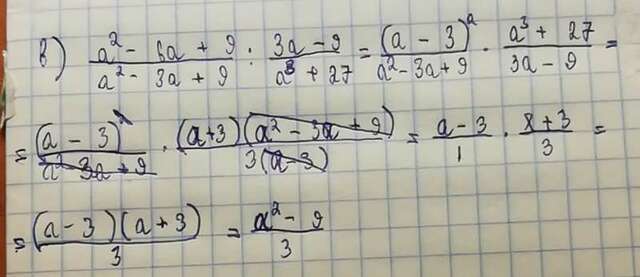 в) (a² - 6a + 9)/(a² - 3a + 9) : (3a - 9)/(a³ + 27) = (a - 3)²/(a² - 3a + 9) · (a³ + 27)/(3a - 9) =
= (a - 3)²/(a² - 3a + 9) · (a+3)(a² - 3a + 9)/3(a-3) = (a-3)/1 · (x+3)/3 =
= (a-3)(a+3)/3 = (a² - 9)/3